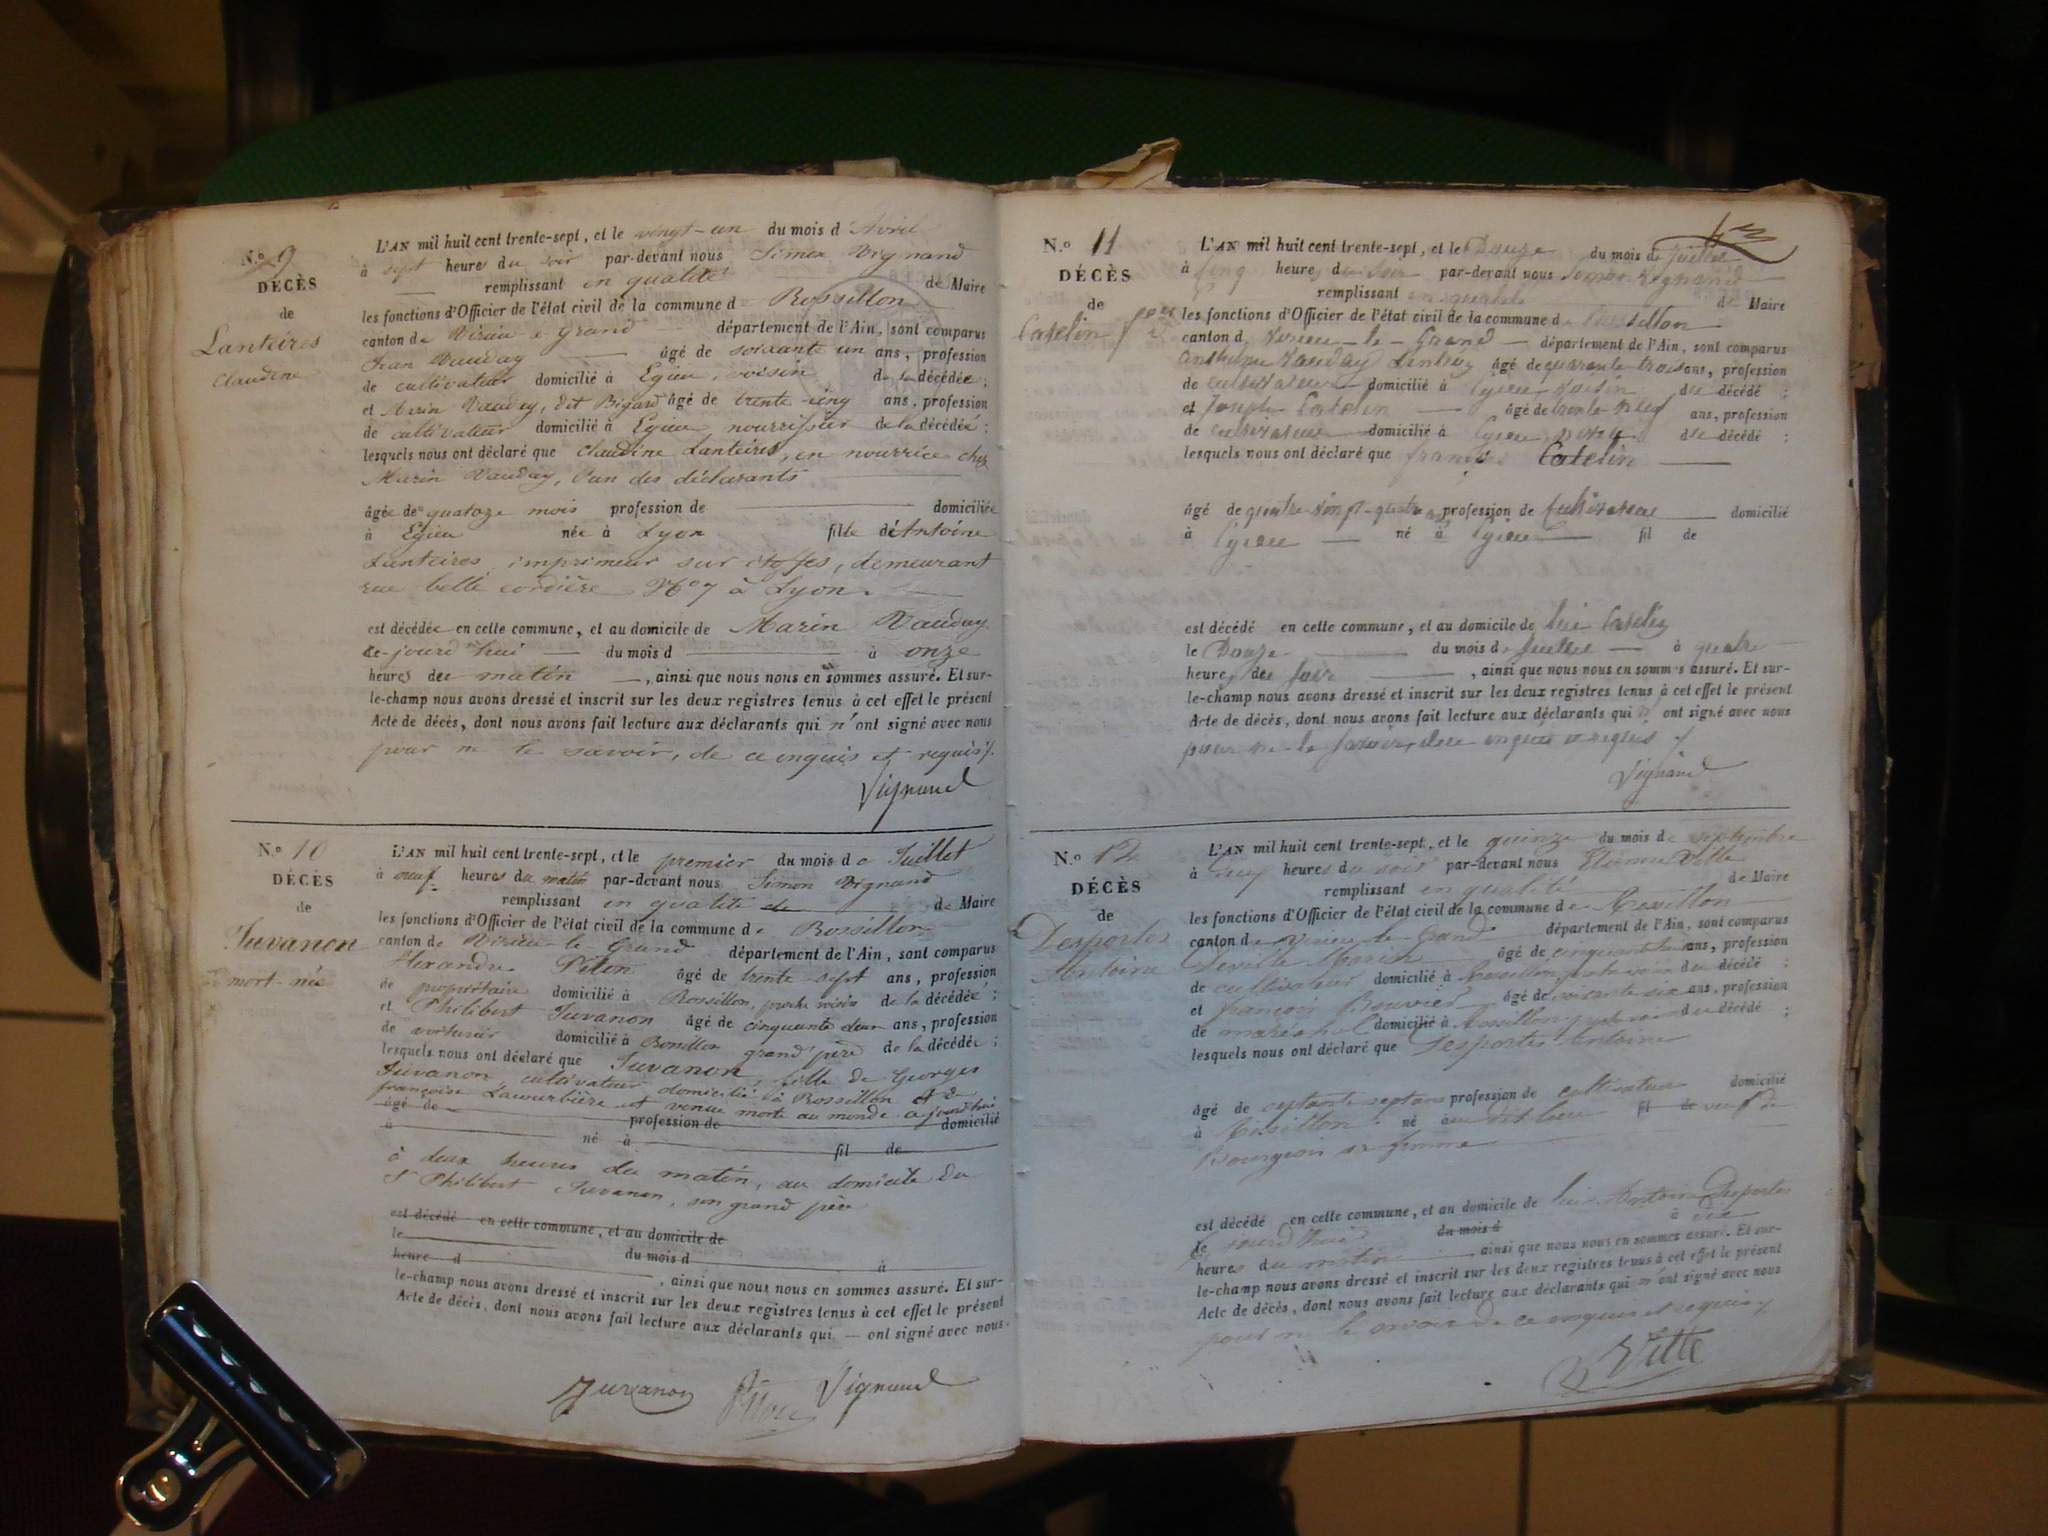 N.o 9
DÉCÈS
de
Lanteires
Claudine
L'AN mil huit cent trente-sept, et le vingt-un du mois d'Avril
à sept heures du soir par-devant nous Simon Vignand
remplissant en qualité de Maire
les fonctions d'Officier de l'état civil de la commune d Rossillon
canton de Virieu-le-Grand département de l'Ain, sont comparus
Jean Vauday âgé de soixante un ans, profession
de cultivateur domicilié à Egieu, voisin de la décédée;
et Marin Vauday, dit Bigard âgé de trente-cinq ans, profession
de cultivateur domicilié à Egieu nourrissier de la décédée;
lesquels nous ont déclaré que Claudine Lanteires, en nourrice chez
Marin Vauday, l'un des déclarants
âgée de quatoze mois profession de domiciliée
à Egieu née à Lyon fille de Antoine
Lanteires, imprimeur sur étoffes, demeurant
rue belle cordière No 7 à Lyon.
est décédée en cette commune, et au domicile de Marin Vauday
ce-jourd'hui du mois d à onze
heures de matin, ainsi que nous nous en sommes assuré. Et sur-
le-champ nous avons dressé et inscrit sur les deux registres tenus à cet effet le présent
Acte de décès, dont nous avons fait lecture aux déclarants qui n'ont signé avec nous
pour ne le savoir, de ce enquis et requis/.
Vignand
N.o 10
DÉCÈS
de
Juvanon
mort-née
L'AN mil huit cent trente-sept, et le premier du mois de Juillet
à neuf heures du matin par-devant nous Simon Vignand
remplissant en qualité de Maire
les fonctions d'Officier de l'état civil de la commune de Rossillon
canton de Virieu-le-Grand département de l'Ain, sont comparus
Alexandre Piton âgé de trente-sept ans, profession
de propriétaire domicilié à Rossillon, proche voisin de la décédée;
et Philibert Juvanon âgé de cinquante deux ans, profession
de domicilié à Rossillon grand'père de la décédée;
lesquels nous ont déclaré que Juvanon, fille de Georges
Juvanon, cultivateur domicilié à Rossillon et de
françoise et venue morte au monde ajourd'hui
âgé de profession de domicilié
à né à fil de
à deux heures du matin, au domicile du
Sr Philibert Juvanon, son grand père
est décédé en cette commune, et au domicile de
le du mois d à
heure d, ainsi que nous nous en sommes assuré. Et sur-
le-champ nous avons dressé et inscrit sur les deux registres tenus à cet effet le présent
Acte de décès, dont nous avons fait lecture aux déclarants qui — ont signé avec nous.
Juvanon Piton Vignand
N.o 11
DÉCÈS
de
Catelin
L'AN mil huit cent trente-sept, et le Douze du mois de Juillet
à Cinq heures du Soir par-devant nous Simon Vignand
remplissant en qualité de Maire
les fonctions d'Officier de l'état civil de la commune de Rossillon
canton d Virieu-le-Grand département de l'Ain, sont comparus
Anthelme Vauday âgé de quarante-trois ans, profession
de cultivateur domicilié à Egieu voisin du décédé;
et Joseph Catelin âgé de trente-neuf ans, profession
de cultivateur domicilié à Egieu du décédé;
lesquels nous ont déclaré que françois Catelin
âgé de quatre-vingt-quatre profession de Cultivateur domicilié
à Egieu né à Egieu fil de
est décédé en cette commune, et au domicile de lui Catelin
le Douze du mois de Juillet à quatre
heures de Soir, ainsi que nous nous en sommes assuré. Et sur-
le-champ nous avons dressé et inscrit sur les deux registres tenus à cet effet le présent
Acte de décès, dont nous avons fait lecture aux déclarants qui n'ont signé avec nous
pour ne le savoir, de ce enquis et requis/.
Vignand
N.o 12
DÉCÈS
de
Desportes
Antoine
L'AN mil huit cent trente-sept, et le quinze du mois de septembre
à heures du soir par-devant nous Etienne Vitte
remplissant en qualité de Maire
les fonctions d'Officier de l'état civil de la commune de Rossillon
canton de Virieu-le-Grand département de l'Ain, sont comparus
Deville Marin âgé de ans, profession
de cultivateur domicilié à Rossillon, proche voisin du décédé;
et françois Bouvier âgé de soixante six ans, profession
de maréchal domicilié à Rossillon, proche voisin du décédé;
lesquels nous ont déclaré que Desportes Antoine
âgé de septante sept ans profession de cultivateur domicilié
à Rossillon né au dit lieu fil de veuf de
Bourgeois sa femme
est décédé en cette commune, et au domicile de lui Antoine Desportes
ce jourd'hui du mois d à dix
heures du matin, ainsi que nous nous en sommes assuré. Et sur-
le-champ nous avons dressé et inscrit sur les deux registres tenus à cet effet le présent
Acte de décès, dont nous avons fait lecture aux déclarants qui n'ont signé avec nous
pour ne le savoir de ce enquis et requis/.
Vitte